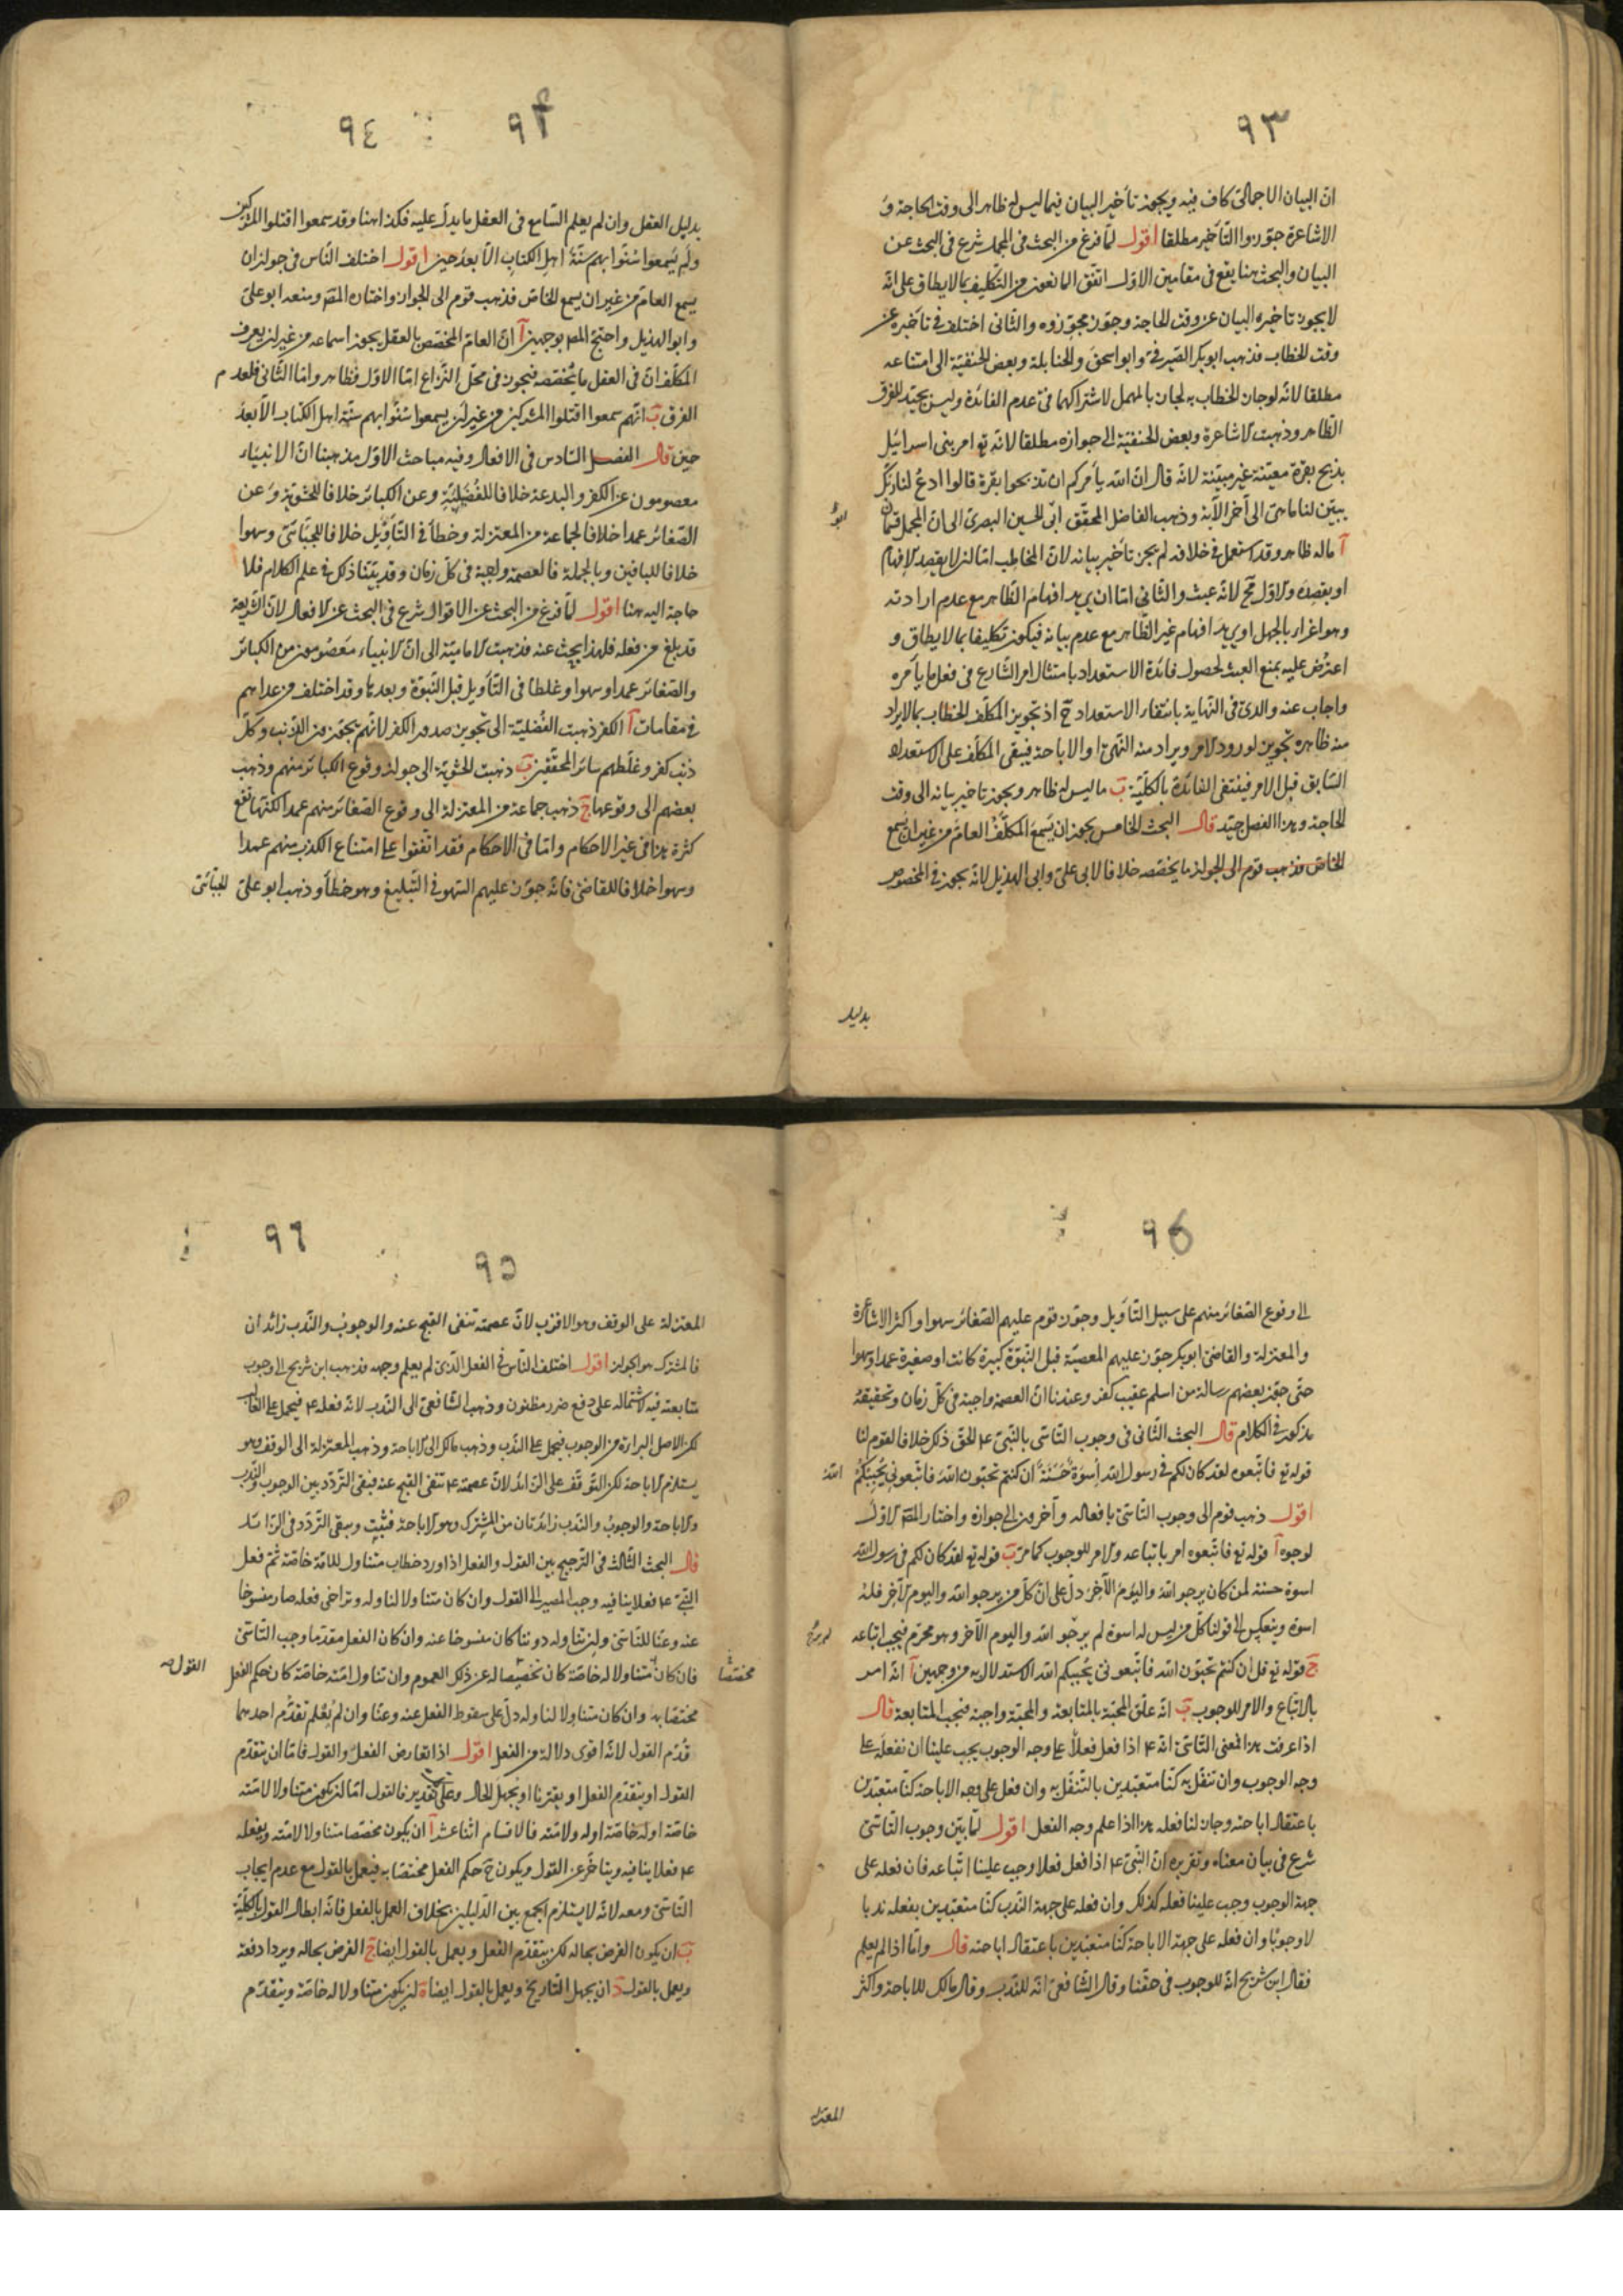 ٩٣
انّ البيان الاجمالى كاف فيه ويجوز تأخير البيان فيما ليس له ظاهر الى وقت الحاجة و
الاشاعرة جوّزوا التأخير مطلقا اقول لمّا فرغ من البحث فى المجمل شرع فى البحث عن
البيان والبحث هنا يقع فى مقامين الاوّل اتّفق المانعون من التكليف بما لا يطاق على انّه
لا يجوز تاخير البيان عن وقت الحاجة وجوّزه مجوّزوه والثانى اختلف فى تأخيره عن
وقت الخطاب فذهب ابو بكر الصيرفى وابو اسحق والحنابلة وبعض الحنفيّة الى امتناعه
مطلقا لانّه لو جاز الخطاب به لجاز بالمهمل لاشتراكهما فى عدم الفائدة وليس بجيّد للفرق
الظاهر وذهبت الاشاعرة وبعض الحنفيّة الى جوازه مطلقا لانّه تع امر بنى اسرائيل
بذبح بقرة معيّنة غير مبيّنة لانّه قال انّ الله يأمركم ان تذبحوا بقرة قالوا ادع لنا ربّك
يبيّن لنا ما هى الى آخر الآية وذهب الفاضل المحقّق ابى الحسين البصرى الى ان المجمل قسمان
ابو
آ ما له ظاهر وقد استعمل فى خلافه لم يجز تأخير بيانه لانّ المخاطِب امّا ان لا يقصد الافهام
او يقصده والاوّل مح لانّه عبث والثانى امّا ان يريد افهام الظاهر مع عدم ارادته
وهو اغراء بالجهل او يريد افهام غير الظاهر مع عدم بيانه فيكون تكليفا بما لا يطاق و
اعترُض عليه بمنع العبث لحصول فائدة الاستعداد بامتثال امر الشارع فى فعل ما يأمره
واجاب عنه والدى فى النهاية بانتفاء الاستعداد ح اذ تجويز المكلّف الخطاب بما لا يراد
منه ظاهره تجويز لورود الامر ويراد منه النهى او الاباحة فيبقى المكلّف على الاستعداد
السابق قبل الامر فينتفى الفائدة بالكلّيّة ب ما ليس له ظاهر ويجوز تاخير بيانه الى وقت
الحاجة وهذا الفصل جيّد قال البحث الخامس يجوز ان يسمع المكلّف العامّ من غير ان يسمع
الخاصّ فذهب قوم الى الجواز ما يخصّصه خلافا لابى على وابى الهذيل لانّه يجوز فى المخصوص
بدليل
٩٤
٩٤
بدليل العقل وان لم يعلم السّامع فى العقل ما يدلّ عليه فكذا هنا وقد سمعوا اقتلوا المشركين
ولم يسمعوا سنّوا بهم سنّة اهل الكتاب الّا بعد حين اقول اختلف النّاس فى جواز ان
يسمع العامّ من غير ان يسمع الخاصّ فذهب قوم الى الجواز واختاره المصّ ومنعه ابو على
وابو الهذيل واحتجّ المصّ بوجهين آ انّ العامّ المخصّص بالعقل يجوز اسماعه من غير ان يعرف
المكلّف انّ فى العقل ما يُخصّصه فيجوز فى محلّ النّزاع امّا الاوّل فظاهر وامّا الثّانى فلعدم
الفرق ب انّهم سمعوا اقتلوا المشركين من غير ان يسمعوا سنّوا بهم سنّة اهل الكتاب الّا بعد
حين قال الفصل السّادس فى الافعال وفيه مباحث الاوّل مذهبنا انّ الانبياء
معصومون عن الكفر والبدعة خلافا للفُضَيليّة وعن الكبائر خلافا للحشويّة وعن
الصّغائر عمدا خلافا لجماعة من المعتزلة وخطأ فى التأويل خلافا للجبّائى وسهوا
خلافا للباقين وبالجملة فالعصمة واجبة فى كلّ زمان وقد بيّنّا ذلك فى علم الكلام فلا
حاجة اليه هنا اقول لمّا فرغ من البحث عن الاقوال شرع فى البحث عن الافعال لانّ الشريعة
قد يبلغ من فعله فلهذا يبحث عنه فذهبت الاماميّة الى انّ الانبياء معصومون من الكبائر
والصّغائر عمدا وسهوا وغلطا فى التأويل قبل النّبوّة وبعدها وقد اختلف من عداهم
فى مقامات آ الكفر ذهبت الفُضليّة الى تجويز صدور الكفر لانّهم يجوّزون الذّنب وكلّ
ذنب كفر وغلّطهم سائر المحقّقين ب ذهبت الحشويّة الى جواز وقوع الكبائر منهم وذهب
بعضهم الى وقوعها ج ذهب جماعة من المعتزلة الى وقوع الصّغائر منهم عمدا لكنّها تقع
كثرة هذا فى غير الاحكام وامّا فى الاحكام فقد اتّفقوا على امتناع الكذب منهم عمدا
وسهوا خلافا للقاضى فانّه جوّز عليهم السّهو فى التّبليغ وهو خطأ وذهب ابو على الجبّائى
٩٥
الى وقوع الصّغائر منهم على سبيل التّأويل وجوّز قوم عليهم الصّغائر سهوا واكثر الاشاعرة
والمعتزلة والقاضى ابو بكر جوّز عليهم المعصيّة قبل النّبوّة كبيرة كانت او صغيرة عمدا وسهوا
حتّى جوّز بعضهم رسالة من اسلم عقيب كفر وعندنا انّ العصمة واجبة فى كلّ زمان وتحقيقه
مذكور فى الكلام قال البحث الثّانى فى وجوب التّاسّى بالنّبىّ ع الحقّ ذلك خلافا لقوم لنا
قوله تع فاتّبعوه لقد كان لكم فى رسول الله اسوة حسنة ان كنتم تحبّون الله فاتّبعونى يُحببكُم
الله
اقول ذهب قوم الى وجوب التّاسّى بافعاله وآخرون الى جوازه واختار المصّ الاوّل
لوجوه آ قوله تع فاتّبعوه امر باتباعه والامر للوجوب كما مرّ ب قوله تع لقد كان لكم فى رسول الله
اسوة حسنة لمن كان يرجو الله واليوم الآخر دلّ على انّ كلّ من يرجو الله واليوم الآخر فله
اسوة وينعكس الى قولنا كلّ من ليس له اسوة لم يرجو الله واليوم الآخر وهو محرّم فيجب اتباعه
ج قوله تع قل ان كنتم تحبّون الله فاتّبعونى يُحببكم الله الاستدلال به من وجهين آ انّه امر
بالاتّباع والامر للوجوب ب انّه علّق المحبّة بالمتابعة والمحبّة واجبة فتجب المتابعة قال
اذا عرفت هذا فمعنى التّاسّى انّه ع اذا فعل فعلا على وجه الوجوب يجب علينا ان نفعله على
وجه الوجوب وان تنفّل به كنّا متعبّدين بالتّنفّل به وان فعل على وجه الاباحة كنّا متعبّدين
باعتقاد اباحته وجاز لنا فعله هذا اذا علم وجه الفعل اقول لمّا بيّن وجوب التّاسّى
شرع فى بيان معناه وتقريره انّ النّبىّ ع اذا فعل فعلا وجب علينا اتّباعه فان فعله على
جهة الوجوب وجب علينا فعله كذلك وان فعله على جهة النّدب كنّا متعبّدين بفعله ندبا
لا وجوبا وان فعله على جهة الاباحة كنّا متعبّدين باعتقاد اباحته قال وامّا اذا لم يعلم
فقال ابن شريح انّه للوجوب فى حقّنا وقال الشّافعى انّه للنّدب وقال مالك للاباحة واكثر
المعتزلة
٩٦
٩٥
المعتزلة على الوقف وهو الاقرب لانّ عصمته تنفى القبح عنه والوجوب والنّدب زائدان
فالمشترك هو الجواز اقول اختلف النّاس فى الفعل الّذى لم يعلم وجهه فذهب ابن شريح الى وجوب
متابعته فيه لاشتماله على دفع ضرر مظنون وذهب الشّافعى الى النّدب لانّه فعله ع فيحمل على الغالب
لكن الاصل البراءة من الوجوب فيحمل على النّدب وذهب مالك الى الاباحة وذهب المعتزلة الى الوقف وهو
يستلزم الاباحة لكن التّوقّف على الزّائد لانّ عصمته ع تنفى القبح عنه فبقى التّردّد بين الوجوب والنّدب
والاباحة والوجوب والنّدب زائدتان من المشترك وهو الاباحة فثبت وبقى التّردّد فى الزّائد
قال البحث الثّالث فى التّرجيح بين القول والفعل اذا ورد خطاب متناول للامّة خاصّة ثمّ فعل
النّبىّ ع فعلا ينافيه وجب المصير الى القول وان كان متناولا لنا وله وتراخى فعله صار منسوخا
عنه وعنّا للتّاسّى وان تناوله دوننا كان منسوخا عنه وان كان الفعل مقدّما وجب التّاسّى
فان كان متناولا له خاصّة كان تخصيصا له عن ذلك العموم وان تناول امّته خاصّة كان حكم الفعل
مختصّا
القول
مختصّا به وان كان متناولا لنا وله دلّ على سقوط الفعل عنه وعنّا وان لم يُعلم تقدّم احدهما
قُدّم القول لانّه اقوى دلالة من الفعل اقول اذا تعارض الفعل والقول فامّا ان يتقدّم
القول او يتقدّم الفعل او يقترنا او يجهل الحال وعلى كل تقدير فالقول امّا ان يكون متناولا لامّته
خاصّة او له خاصّة او له ولامّته فالاقسام اثنا عشر آ ان يكون مختصّا متناولا لامّته ويفعله
ع فعلا ينافيه ويتاخّر عن القول ويكون ح حكم الفعل مختصّا به فيعمل بالقول مع عدم ايجاب
التّاسّى ومعه لانّه لا يستلزم الجمع بين الدّليلين بخلاف العمل بالفعل فانّه ابطال القول بالكلّيّة
ب ان يكون الفرض بحاله لكن يتقدّم الفعل ويعمل بالقول ايضا ج الفرض بحاله ويردا دفعة
ويعمل بالقول د ان يجهل التّاريخ ويعمل بالقول ايضا ه ان يكون متناولا له خاصّة ويتقدّم